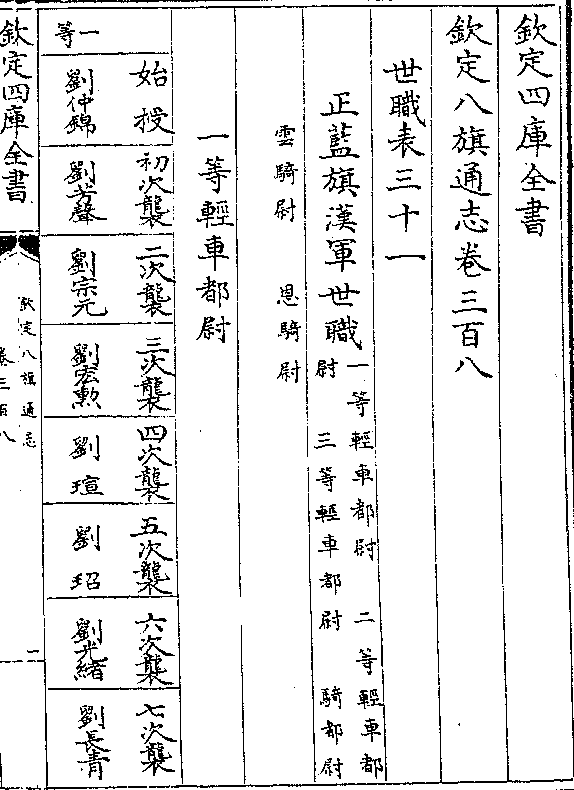 欽定四庫全書
欽定八旗通志卷三百八
世職表三十一
正藍旗漢軍世職 一等輕車都尉 二等輕車都
尉 三等輕車都尉 騎都尉
雲騎尉 恩騎尉
一等輕車都尉
始授 初次襲 二次襲 三次襲 四次襲 五次襲 六次襲 七次襲
劉仲錦 劉芳聲 劉宗元 劉宏勲 劉瑄 劉玿 劉光緒 劉長青
一等
欽定四庫全書
欽定八旗通志
卷三百八
一